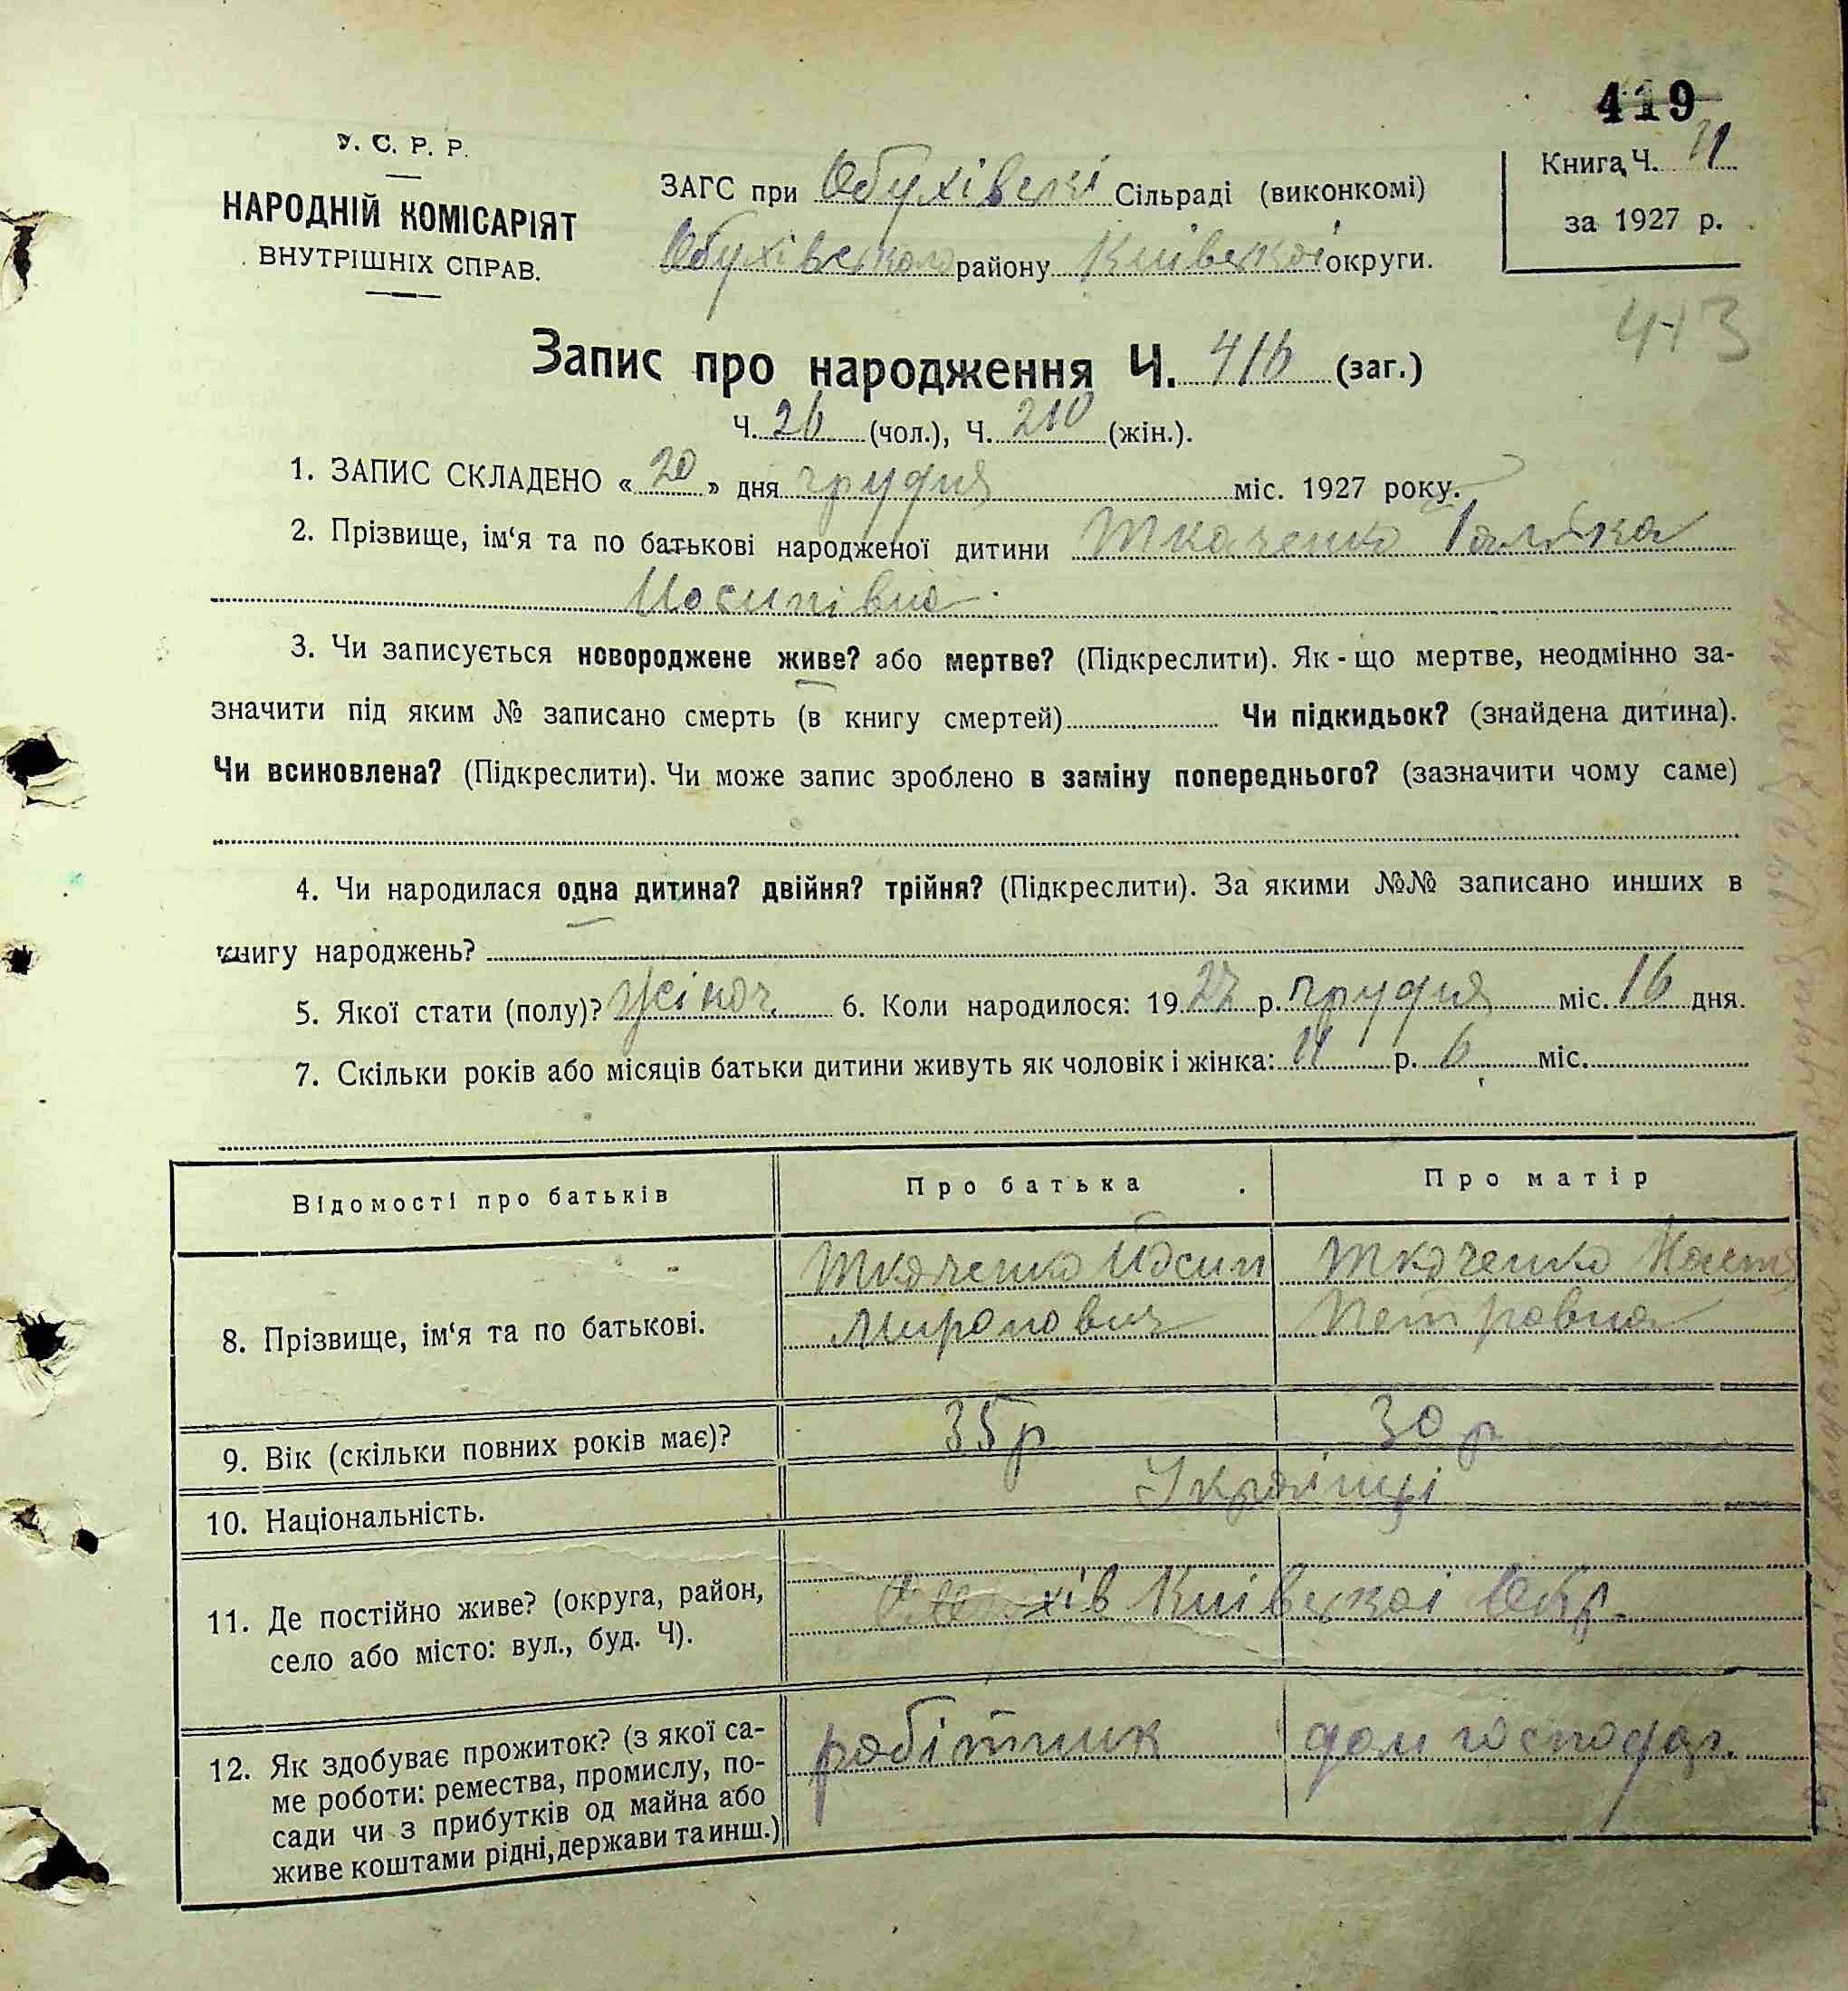 419
У. С. Р. Р.
НАРОДНІЙ КОМІСАРІЯТ
ВНУТРІШНІХ СПРАВ.
ЗАГС при Обухівські Сільраді (виконкомі)
Обухівського району Київської округи.
Книга Ч. 11
за 1927 р.
413
Запис про народження Ч. 416 (заг.)
Ч. 26 (чол.), Ч. 210 (жін.).
1. ЗАПИС СКЛАДЕНО « 20 » дня грудня міс. 1927 року.
2. Прізвище, ім‘я та по батькові народженої дитини Ткаченко Галька
Йосипівна
3. Чи записується новороджене живе? або мертве? (Підкреслити). Як-що мертве, неодмінно за-
значити під яким № записано смерть (в книгу смертей) Чи підкидьок? (знайдена дитина).
Чи всиновлена? (Підкреслити). Чи може запис зроблено в заміну попереднього? (зазначити чому саме)
4. Чи народилася одна дитина? двійня? трійня? (Підкреслити). За якими №№ записано инших в
книгу народжень?
5. Якої стати (полу)? жіноч. 6. Коли народилося: 1927 р. грудня міс. 16 дня.
7. Скільки років або місяців батьки дитини живуть як чоловік і жінка: 11 р. 6 міс.
Відомості про батьків Про батька Про матір
8. Прізвище, ім‘я та по батькові.
Ткаченко Йосип Ткаченко Настя
Миронович Петровна
9. Вік (скільки повних років має)? 35 р 30 р
10. Національність. Українці
11. Де постійно живе? (округа, район,
село або місто: вул., буд. Ч).
Обухів Київської Окр.
12. Як здобуває прожиток? (з якої са-
ме роботи: ремества, промислу, по-
сади чи з прибутків од майна або
живе коштами рідні, держави та инш.)
робітник дом господар.